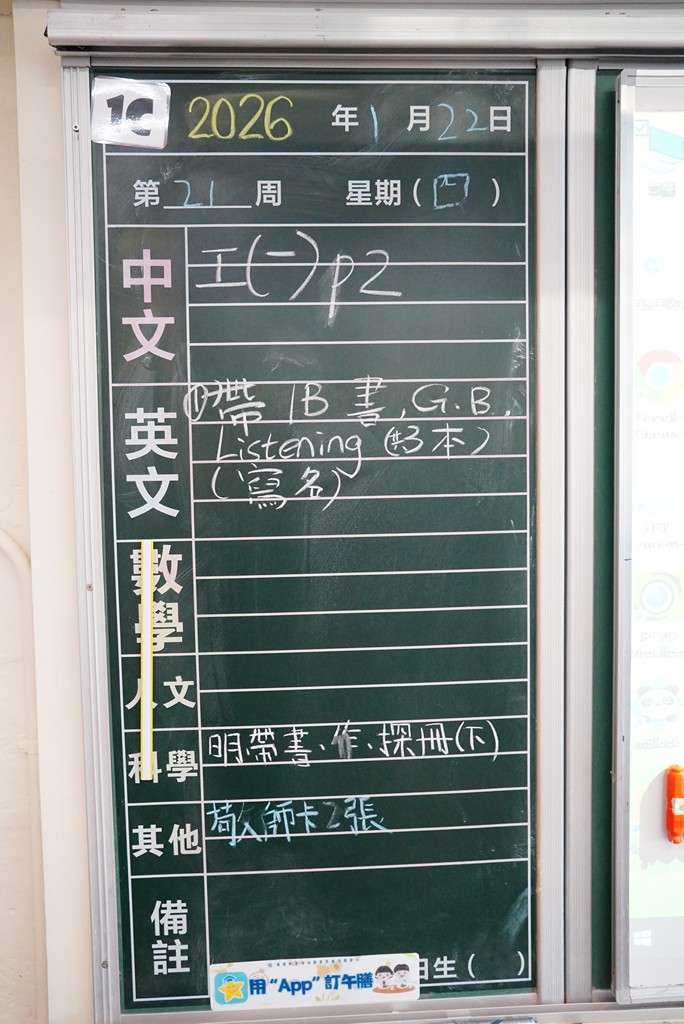 1C 2026年1月22日
第21周 星期(四)
中文
工(一)p2
英文
①帶 1B 書, G.B.,
Listening (共3本)
(寫名)
數學
人文
科學
明帶書、作、探冊(下)
其他
敬師卡2張
備註
日生( )
用“App”訂午膳